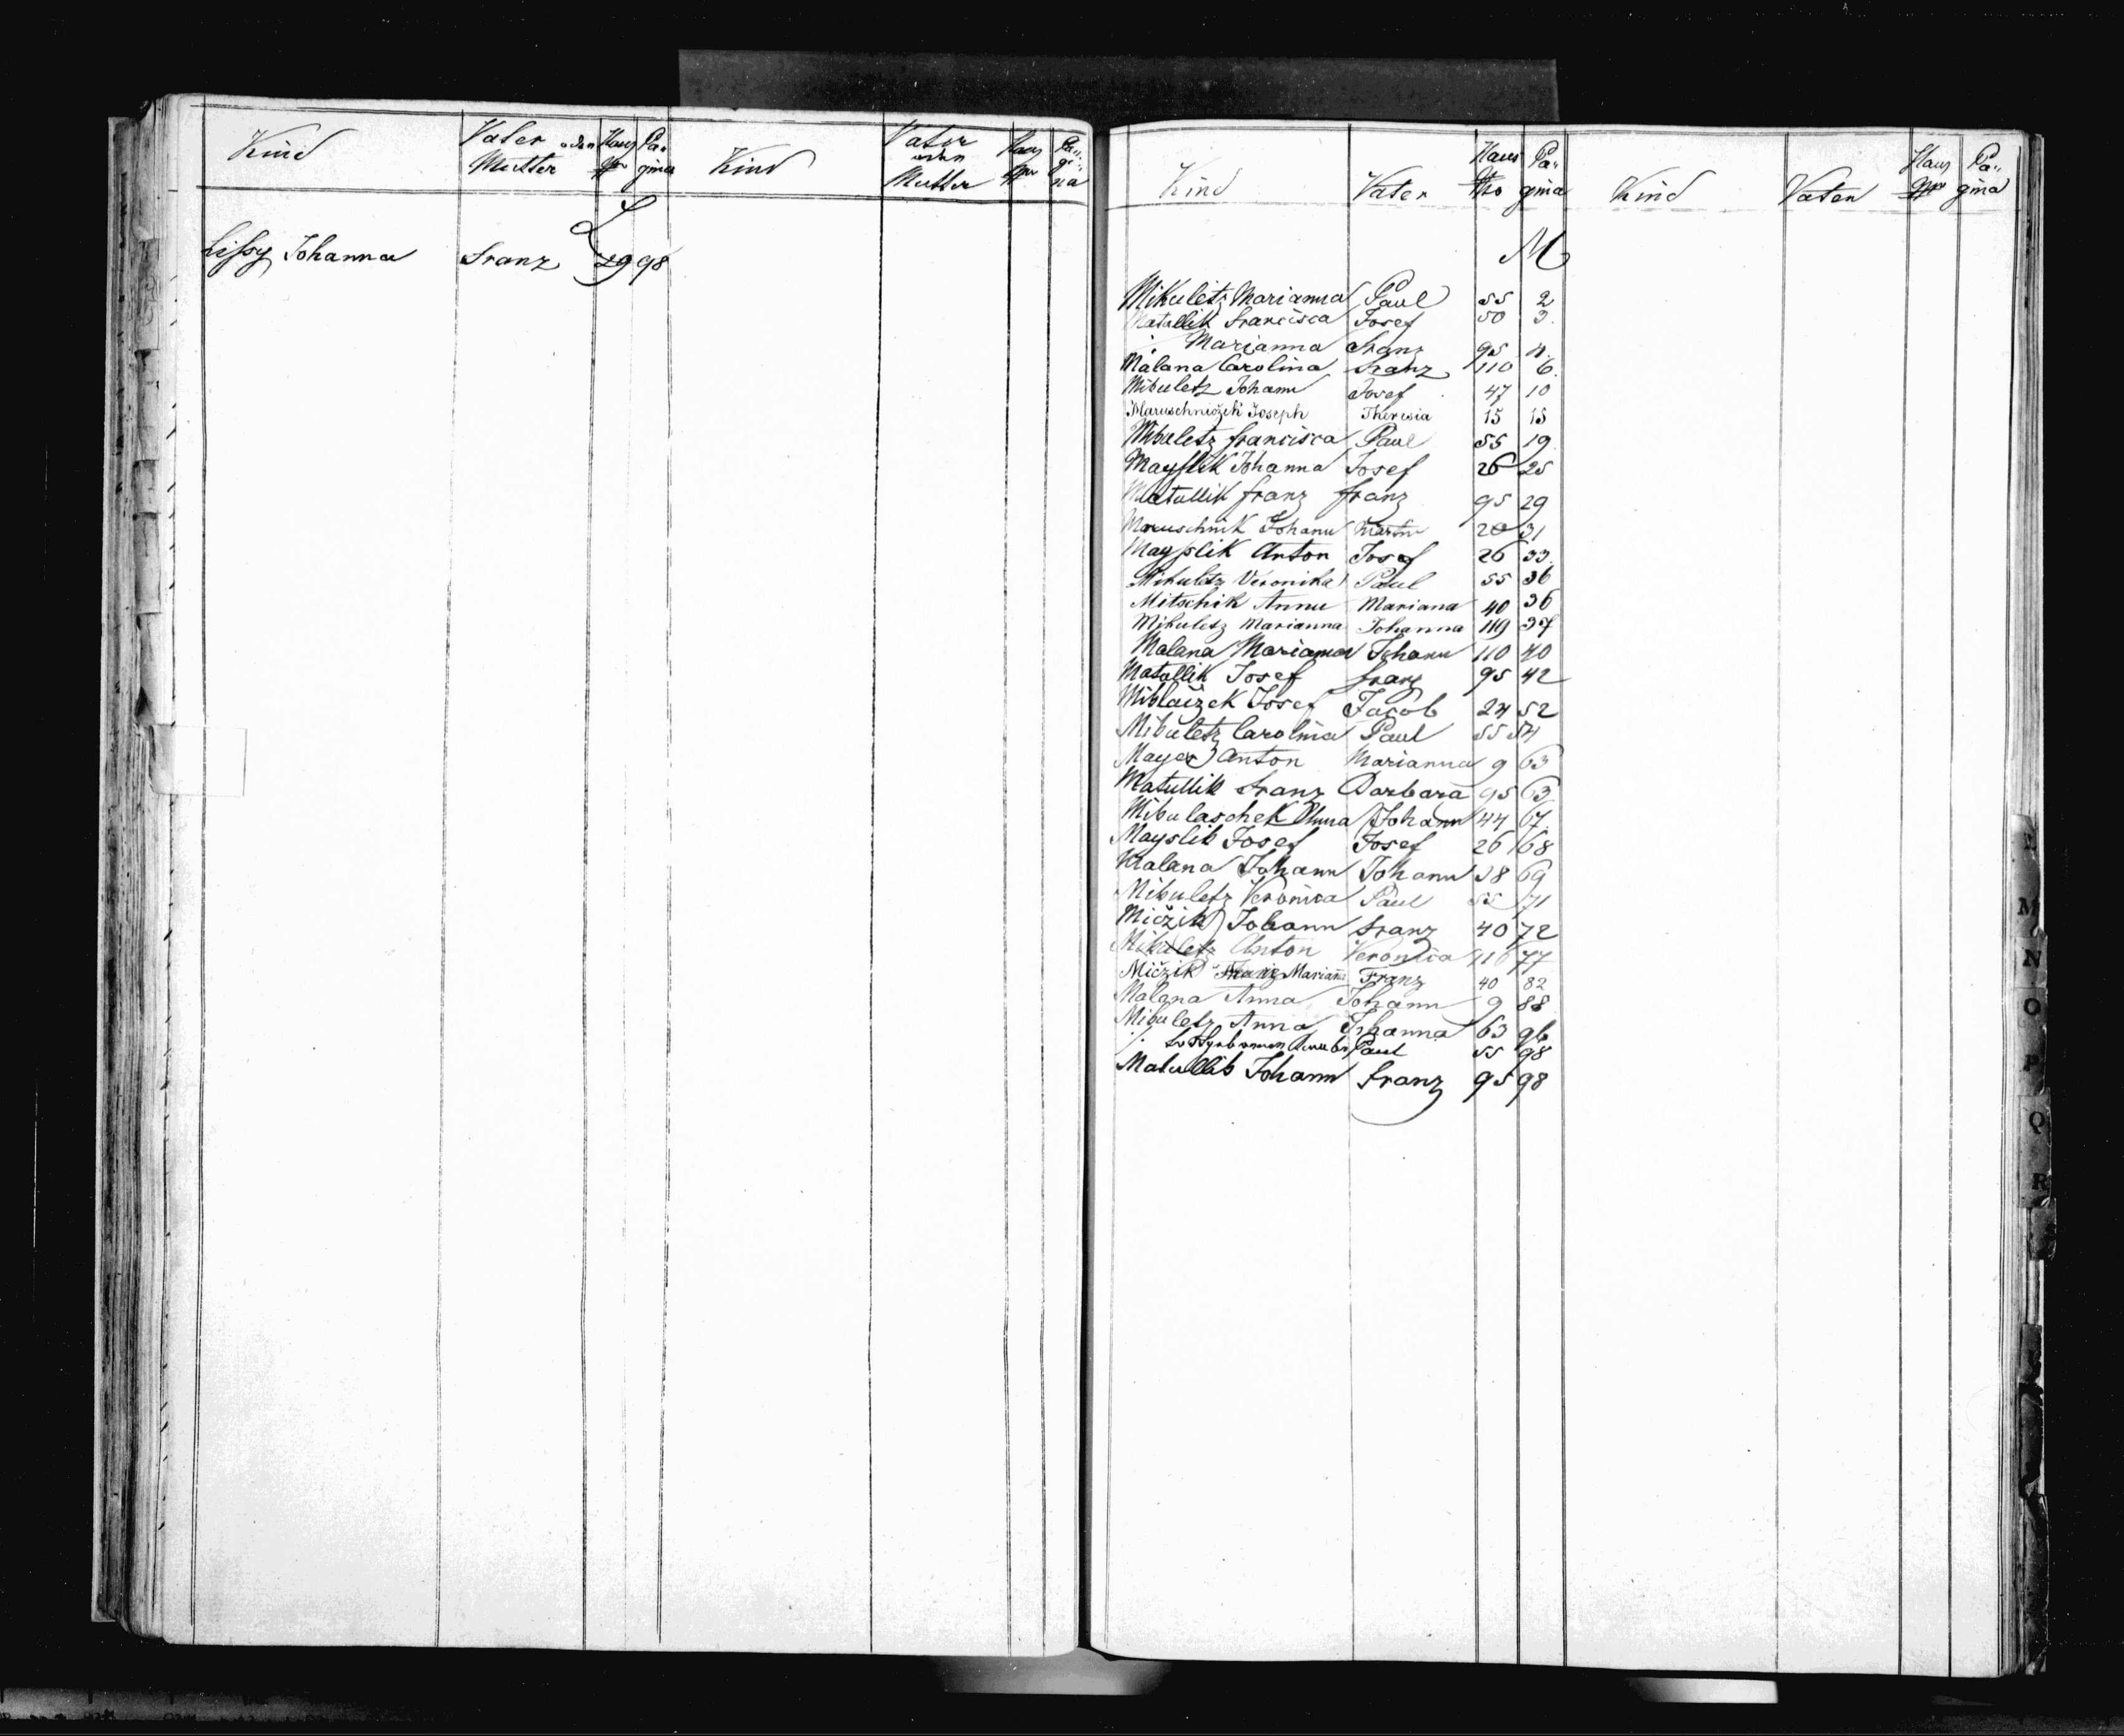 Kind Vater oder Mutter Haus Nro Pagina Kind Vater oder Mutter Haus Nro Pagina
L
Lissy Johanna Franz 29 98
Kind Vater Haus Nro Pagina Kind Vater Haus Nro Pagina
M
Mikuletz Marianna Paul 55 2
Matullik Francisca Josef 50 3.
Marianna Franz 95 4.
Malana Carolina Franz 110 6.
Mikuletz Johann Josef 47 10
Maruschniczek Joseph Theresia 15 15
Mikuletz Francisca Paul 55 19
Mayslik Johanna Josef 26 25
Matullik Franz Franz 95 29
Maruschnik Johann Martin 20 31
Mayslik Anton Josef 26 33.
Mikuletz Veronika Paul 55 36
Mitschik Anna Mariana 40 36
Mikuletz Marianna Johanna 119 37
Malana Marianna Johann 110 40
Matullik Josef Franz 95 42
Josef Jacob 24 52
Mikuletz Carolina Paul 55 54
Mayer Anton Marianna 9 63
Matullik Franz Barbara 95 63
Mikulaschek Anna Johann 44 67
Mayslik Josef Josef 26 68
Malana Johann Johann 38 69
Mikuletz Veronica Paul 55 71
Mičzik Johann Franz 40 72
Mikuletz Anton Veronica 116 77
Mičzik Mariana Franz 40 82
Malana Anna Johann 9 88
Mikuletz Anna Johanna 63 96
Paul 55 98
Matullik Johann Franz 95 98
N
M
N
O
P
Q
R